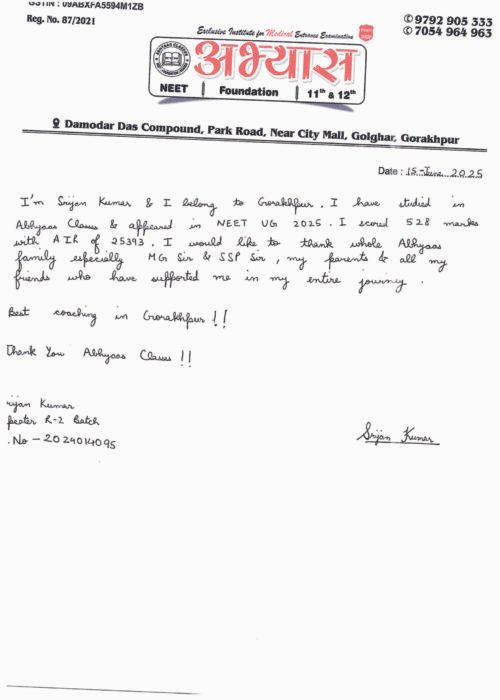 GSTIN : 09ABXFA5594M1ZB
Reg. No. 87/2021
Exclusive Institute for Medical Entrance Examination
✆ 9792 905 333
✆ 7054 964 963
अभ्यास
NEET | Foundation | 11th & 12th
Damodar Das Compound, Park Road, Near City Mall, Golghar, Gorakhpur
Date : 15-June 2025
I'm Srijan Kumar & I belong to Gorakhpur. I have studied in
Abhyaas Classes & appeared in NEET UG 2025. I scored 528 marks
with AIR of 25393. I would like to thank whole Abhyaas
family especially MG Sir & SSP Sir, my parents & all my
friends who have supported me in my entire journey.
Best coaching in Gorakhpur !!
Thank You Abhyaas Classes !!
rijan Kumar
peater R-2 Batch
.No - 2024014095
Srijan Kumar